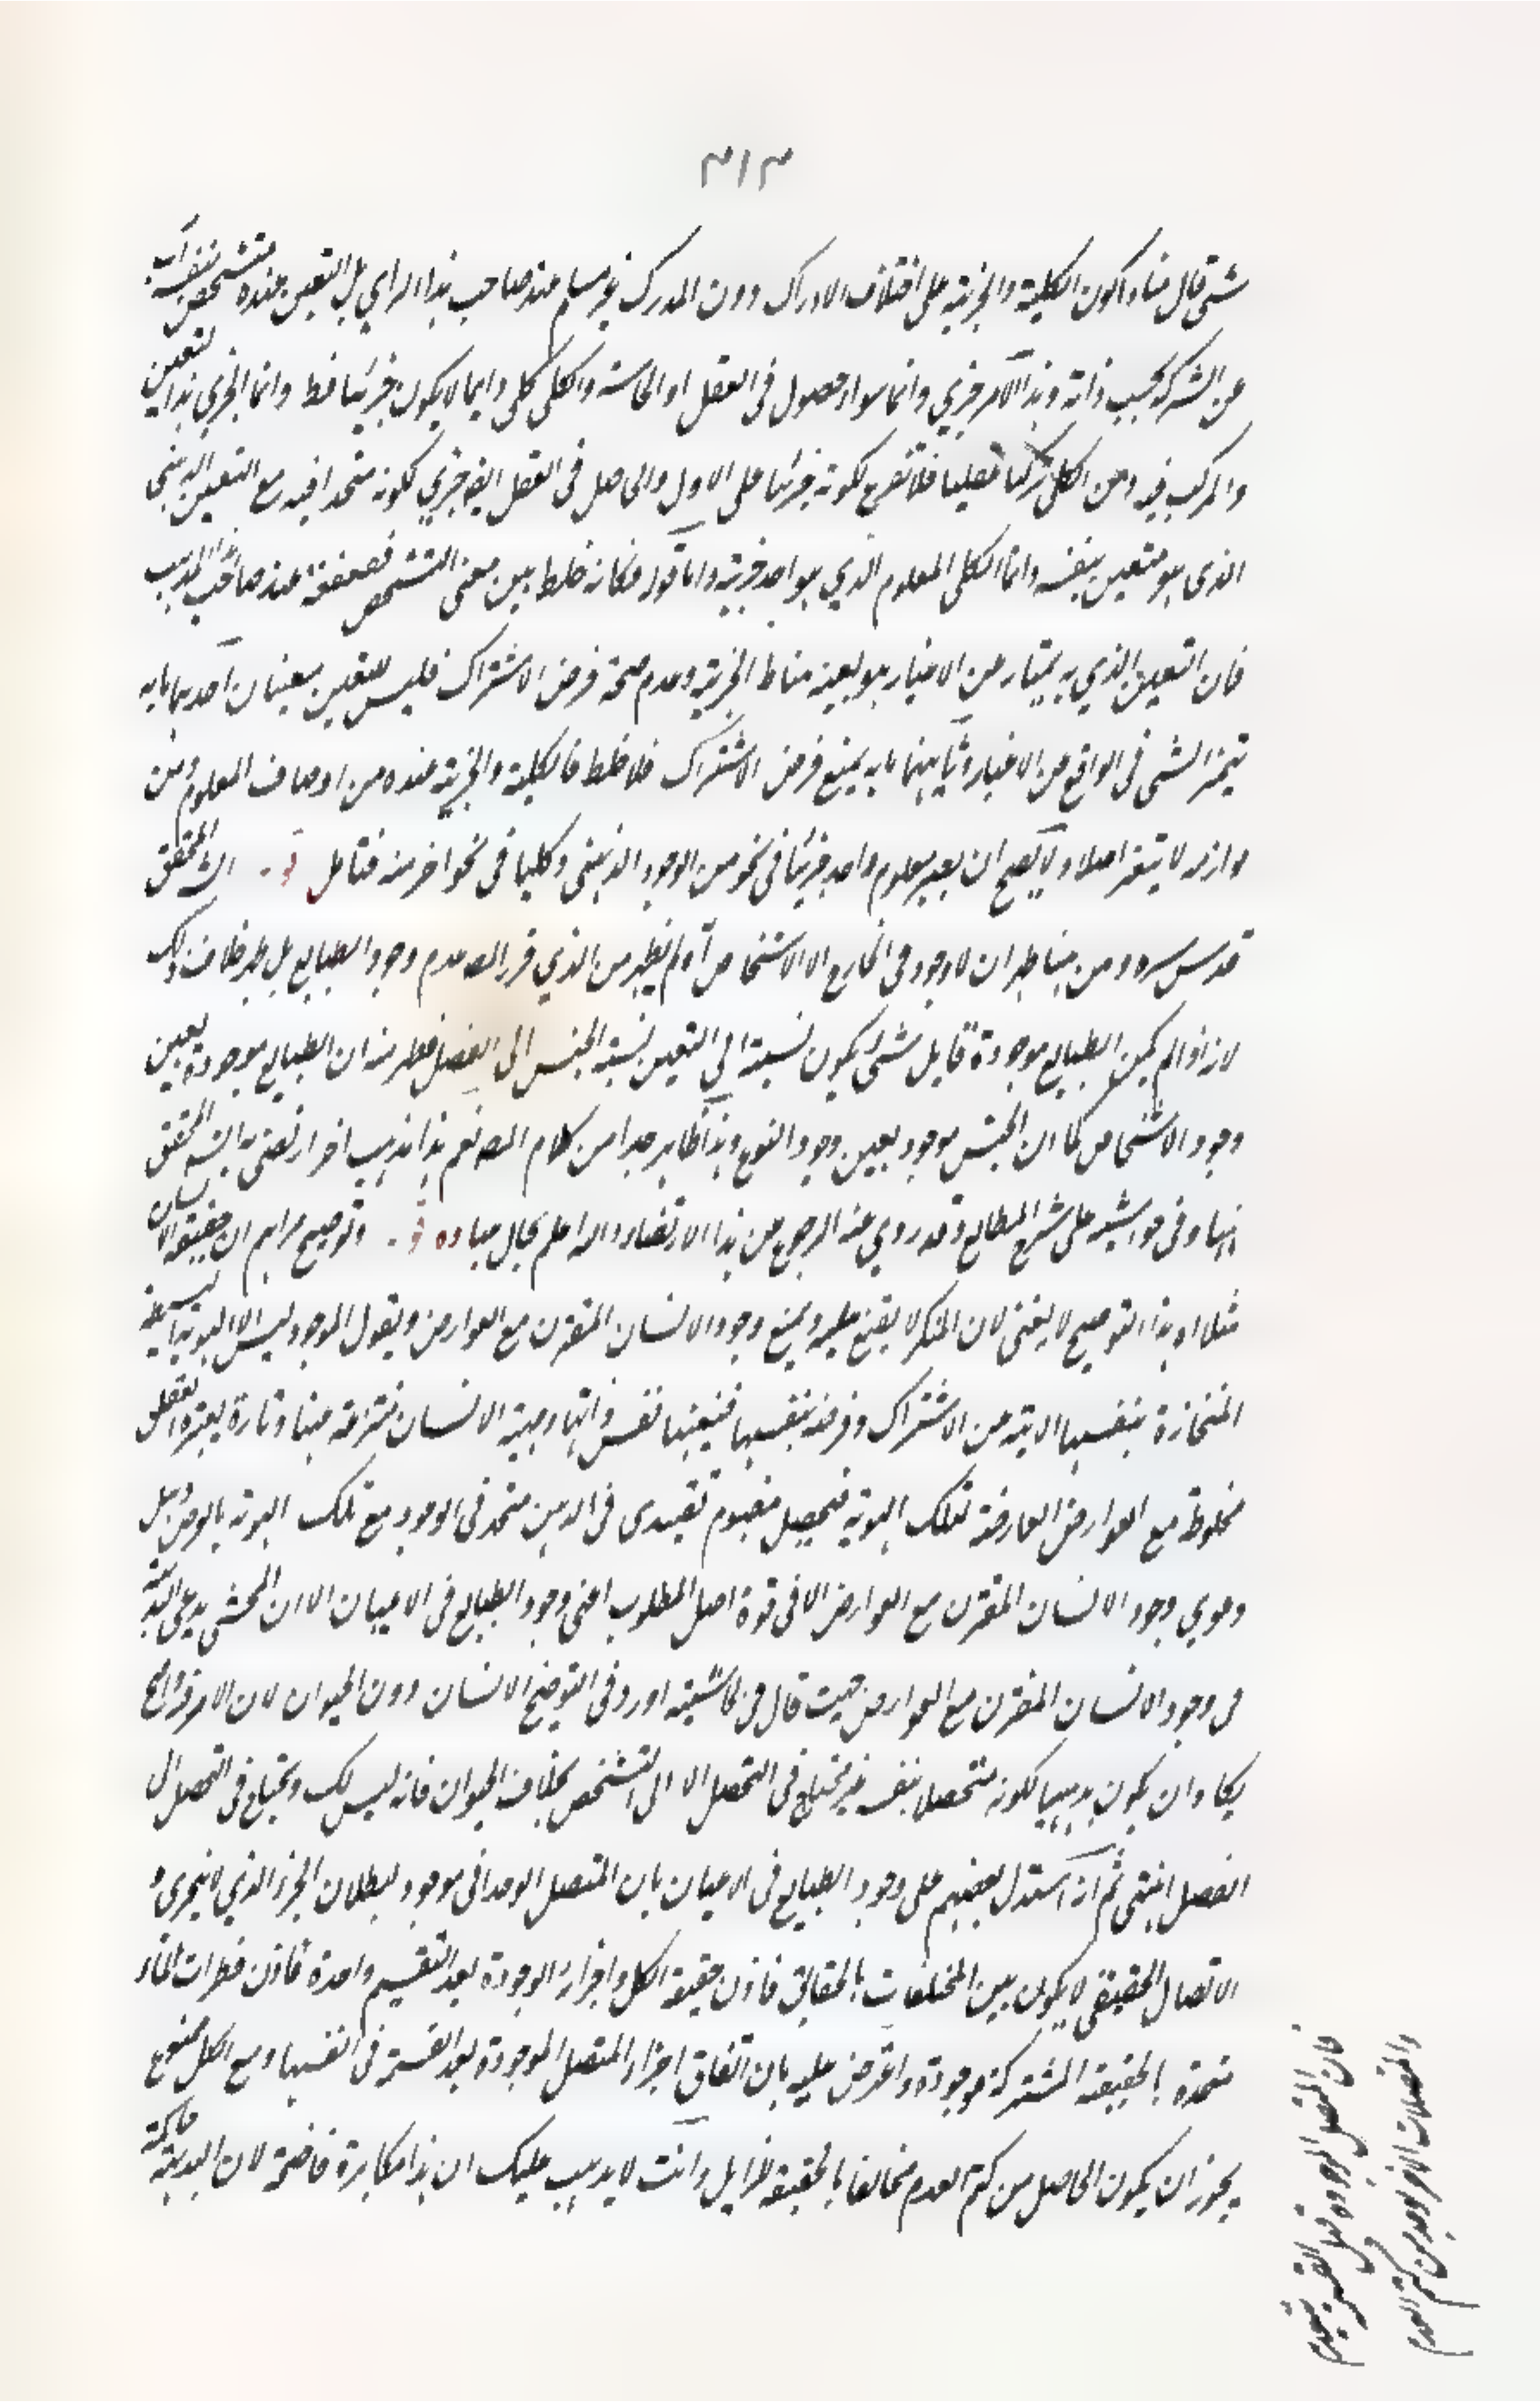 ٣١٣
شئ قال فناء كون الكلية والجزئية على اختلاف الادراك دون المدرك غير مسلم عند صاحب هذا الراي بل التعين عنده متشخص بنفسه آب
عن الشركة بحسب ذاته وهذا الامر جزي وانما سواء حصول فى العقل او الحاسة والكلى كلى دايما لا يكون جزئيا قط وانما الجزي هذا التعين
والمركب فيه ومن الكل تركبا عقليا فلا تفرع لكونه جزئيا على الاول والحاصل فى العقل ايضا جزي لكونه متحدا فيه مع التعين الذهنى
الذى هو متعين بنفسه وانما الكلى المعلوم الذي هو احد جزئيه واما قوله فكانه خلط بين معنى التشخص فضعفه عند صاحب هذا المذهب
فان التعين الذي به يمتاز عن الاغيار هو بعينه مناط الجزئية وعدم صحة فرض الاشتراك فليس للتعين معنيان احدهما ما به
يتميز الشئ فى الواقع عن الاغيار وثانيهما ما به يمنع فرض الاشتراك فلا خلط فالكلية والجزئية عنده من اوصاف المعلوم ومن
لوازمه لا يتغير اصلا ولا يصح ان يصير معلوم واحد جزئيا فى نحو من الوجود الذهنى وكليا فى نحو اخر منه فتامل قو المحقق
قدس سره ومن هنا ظهر ان لا وجود فى الخارج الا الاشخاص آه لم يظهر من الذي قرر المصه عدم وجود الطبايع بل ظهر خلاف ذلك
لانه اذا لم يكن الطبايع موجودة فاي شئ يكون نسبته الى التعين نسبة الجنس الى الفصل فظهر منه ان الطبايع موجودة بعين
وجود الاشخاص كما ان الجنس موجود بعين وجود النوع وهذا ظاهر جدا من كلام المصه نعم هذا مذهب اخر ارتضى به السيد المحقق
ههنا وفى حواشيه على شرح المطالع وقد روي عنه الرجوع عن هذا الارتضاء والله اعلم بحال عباده قو وتوضيح مرامهم ان حقيقة الانسان
مثلا اه هذا التوضيح لا يغنى لان المنكر لا يقنع عليه ويمنع وجود الانسان المقترن مع العوارض ويقول الموجود ليس الا الهوية البسيطة
المنحازة بنفسها الابية عن الاشتراك وفرضه بنفسها فتعينها نفس ذاتها وماهية الانسان منتزعة عنها وتارة يعتبره العقل
مخلوطة مع العوارض العارضة لتلك الهوية فيحصل مفهوم تقييدى فى الذهن متحد فى الوجود مع تلك الهوية بالعرض وهل
دعوي وجود الانسان المقترن مع العوارض الا فى قوة اصل المطلوب اعنى وجود الطبايع فى الاعيان الا ان المحشى يدعى البداهة
فى وجود الانسان المقترن مع العوارض حيث قال فى الحاشية اورد فى التوضيح الانسان دون الحيوان لان الامر فى النوع
يكاد ان يكون بديهيا لكونه متحصلا بنفسه غير محتاج فى التحصل الا الى التشخص بخلاف الحيوان فانه ليس كك ويحتاج فى التحصل الى
الفصل انتهى ثم انه استدل بعضهم على وجود الطبايع فى الاعيان بان المتصل الوحدانى موجود لبطلان الجزء الذي لا يتجزى و
الاتصال الحقيقى لا يكون بين المختلفات بالحقايق فاذن حقيقة الكل واجزائه الموجودة بعد التقسيم واحدة فاذن قطرات الماء
متحدة بالحقيقة المشتركة موجودة واعترض عليه بان اتفاق اجزاء المتصل الموجودة بعد القسمة فى انفسها ومع الكل ممنوع
يجوز ان يكون الحاصل من كتم العدم مخالفا بالحقيقة للزايل وانت لا يذهب عليك ان هذا مكابرة فاضحة لان البديهة حاكمة
فان المتصل الموجود قبل القسمة ينعدم
والمتصلات الاخر توجد من كتم العدم